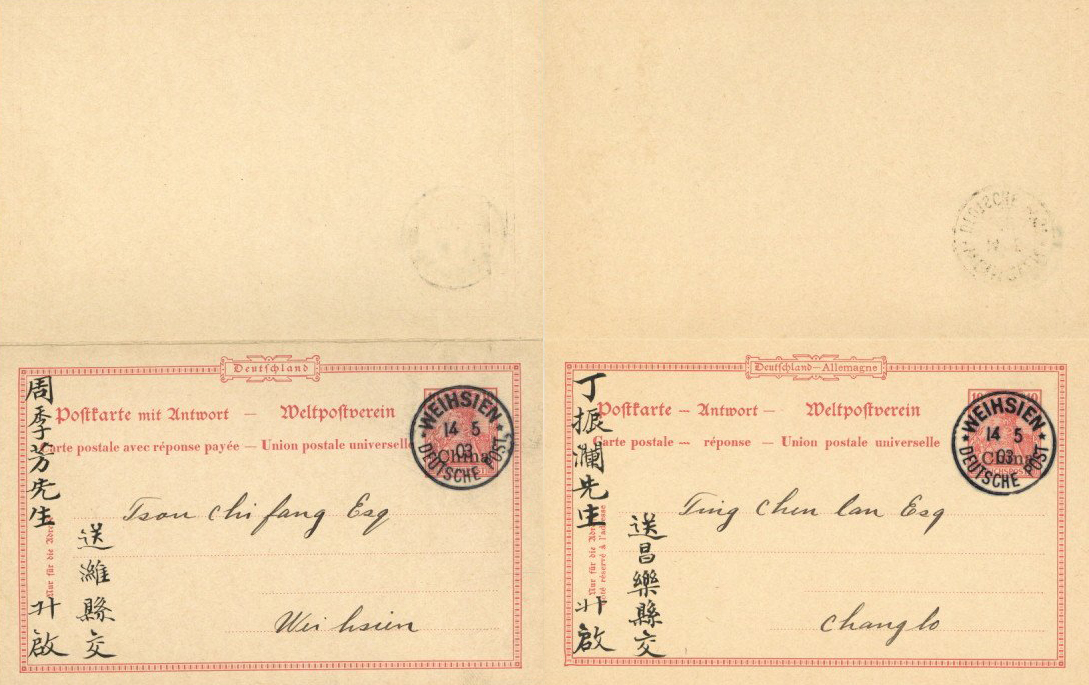 Deutschland
Postkarte mit Antwort — Weltpostverein
Carte postale avec réponse payée — Union postale universelle
WEIHSIEN
14 5
03
DEUTSCHE POST
China
周季芳先生 升啟
送濰縣交
Tsou Chi fang Esq
Wei hsien
Nur für die Adresse
Deutschland—Allemagne
Postkarte — Antwort — Weltpostverein
Carte postale — réponse — Union postale universelle
10
WEIHSIEN
14 5
03
DEUTSCHE POST
China
丁振瀾先生 升啟
送昌樂縣交
Ting Chen lan Esq
Chang lo
Nur für die Adresse
Côté réservé à l'adresse